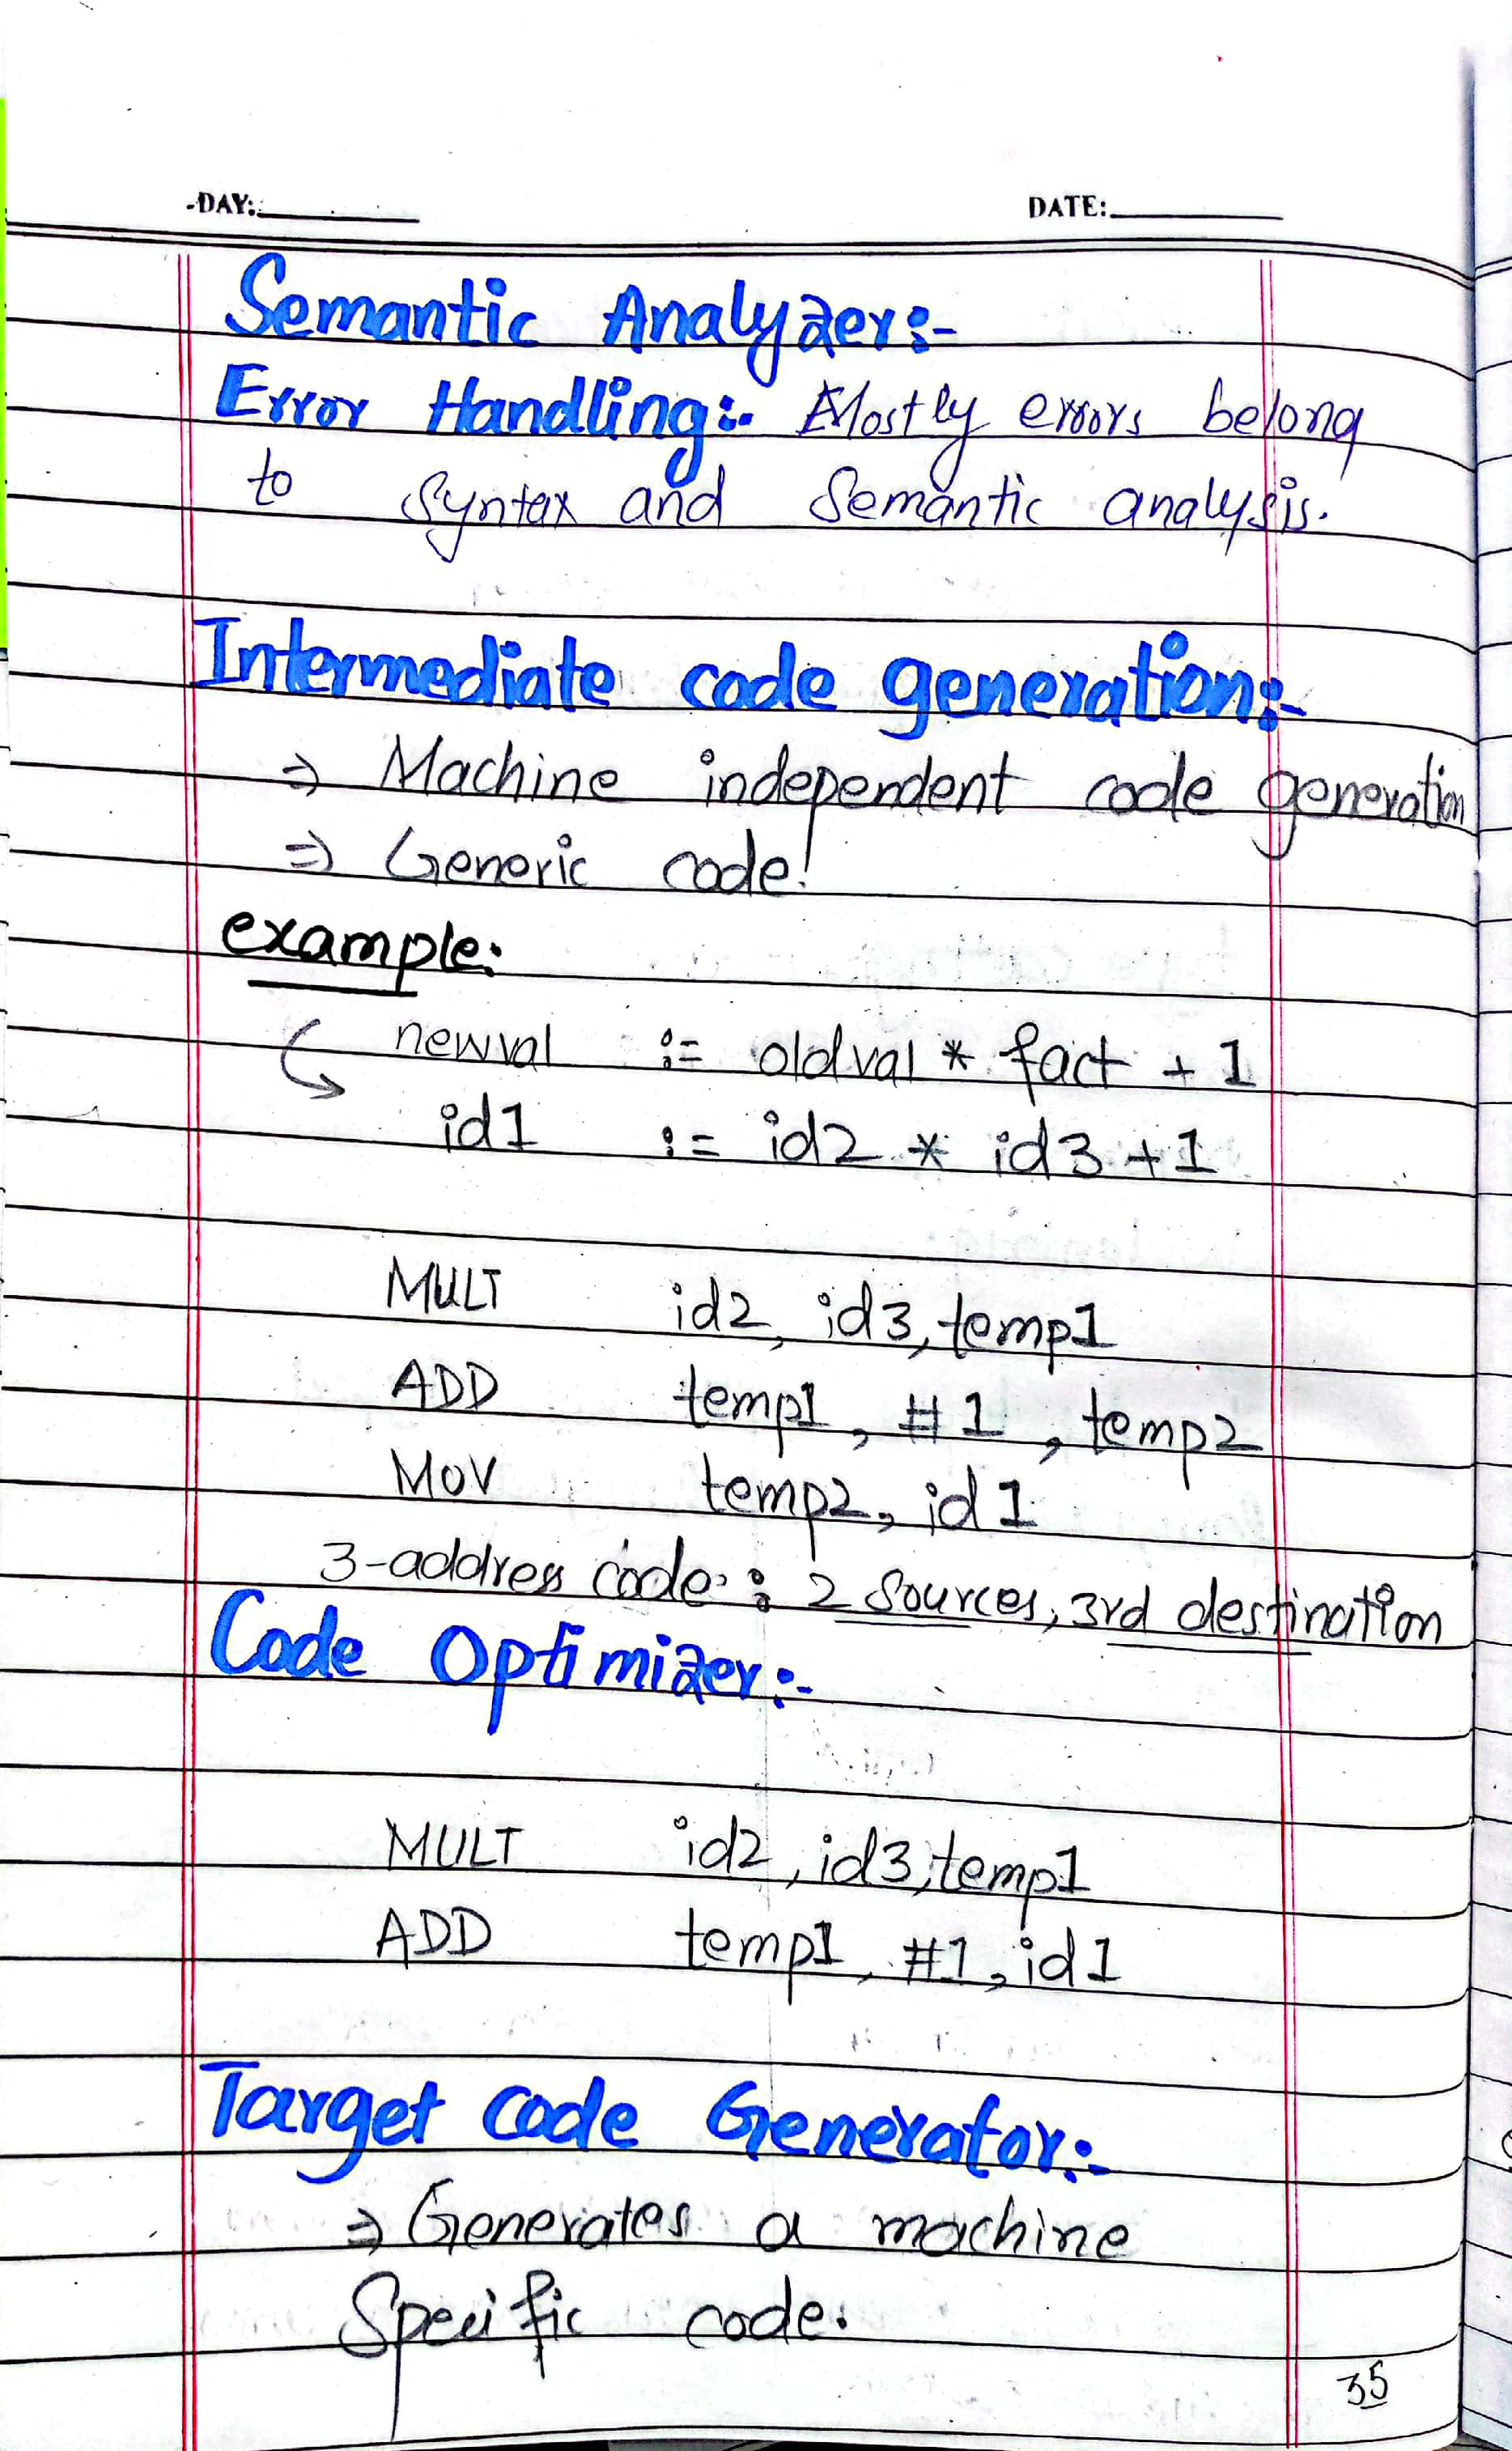 DAY: DATE:
Semantic Analyzer:-
Error Handling:- Mostly errors belong
to syntax and Semantic analysis.
Intermediate code generation:-
⇒ Machine independent code generation
⇒ Generic code!
example:
newval := oldval * fact + 1
id1 := id2 * id3 + 1
MULT id2, id3, temp1
ADD temp1, #1, temp2
MOV temp2, id1
3-address code: 2 sources, 3rd destination
Code Optimizer:-
MULT id2, id3, temp1
ADD temp1, #1, id1
Target Code Generator:-
⇒ Generates a machine
Specific code.
35